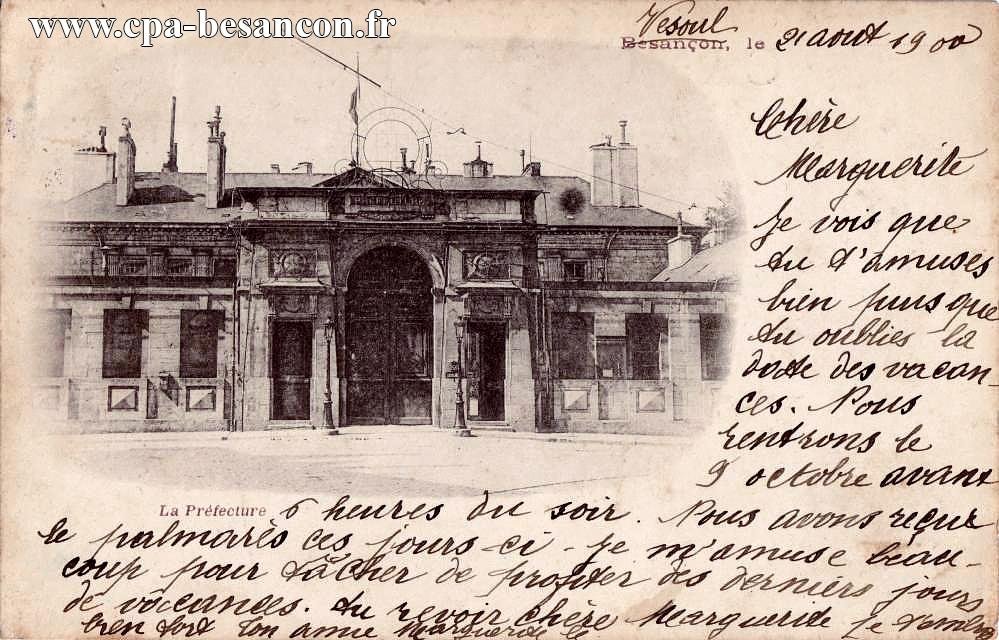 www.cpa-besancon.fr
Vesoul
Besançon, le 21 aout 1900
Chère
Marguerite
Je vois que
tu t'amuses
bien puisque
tu oublies la
datte des vacan-
ces. Nous
rentrons le
9 octobre avant
La Préfecture 6 heures du soir. Nous avons reçus
le palmarès ces jours-ci. Je m'amuse beau-
coup pour tâcher de profiter des derniers jours
de vacances. Au revoir chère Marguerite je
bien fort ton amie Marguerite